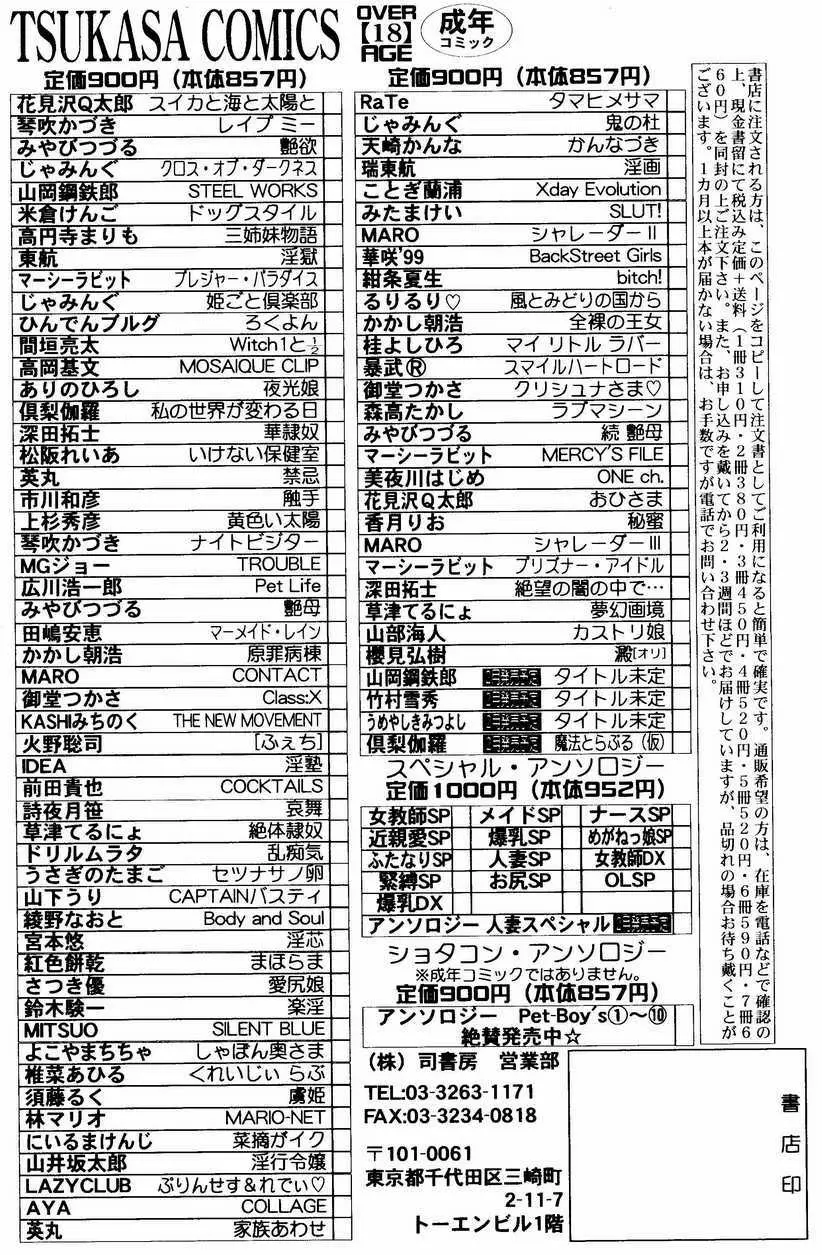 TSUKASA COMICS
OVER
【18】
AGE
成年
コミック
定価900円（本体857円）
花見沢Q太郎 スイカと海と太陽と
琴吹かづき レイプ ミー
みやびつづる 艶欲
じゃみんぐ クロス・オブ・ダークネス
山岡鋼鉄郎 STEEL WORKS
米倉けんご ドッグスタイル
高円寺まりも 三姉妹物語
東航 淫獄
マーシーラビット プレジャー・パラダイス
じゃみんぐ 姫ごと倶楽部
ひんでんブルグ ろくよん
間垣亮太 Witch1と1/2
高岡基文 MOSAIQUE CLIP
ありのひろし 夜光娘
倶梨伽羅 私の世界が変わる日
深田拓士 華隷奴
松阪れいあ いけない保健室
英丸 禁忌
市川和彦 触手
上杉秀彦 黄色い太陽
琴吹かづき ナイトビジター
MGジョー TROUBLE
広川浩一郎 Pet Life
みやびつづる 艶母
田嶋安恵 マーメイド・レイン
かかし朝浩 原罪病棟
MARO CONTACT
御堂つかさ Class:X
KASHIみちのく THE NEW MOVEMENT
火野聡司 [ふぇち]
IDEA 淫塾
前田貴也 COCKTAILS
詩夜月笹 哀舞
草津てるにょ 絶体隷奴
ドリルムラタ 乱痴気
うさぎのたまご セツナサノ卵
山下うり CAPTAINバスティ
綾野なおと Body and Soul
宮本悠 淫芯
紅色餅乾 まほらま
さつき優 愛尻娘
鈴木験一 楽淫
MITSUO SILENT BLUE
よこやまちちゃ しゃぼん奥さま
椎菜あひる くれいじぃ らぶ
須藤るく 虜姫
林マリオ MARIO-NET
にいるまけんじ 菜摘がイク
山井坂太郎 淫行令嬢
LAZYCLUB ぷりんせす&れでぃ♡
AYA COLLAGE
英丸 家族あわせ
定価900円（本体857円）
RaTe タマヒメサマ
じゃみんぐ 鬼の杜
天崎かんな かんなづき
瑞東航 淫画
ことぎ蘭浦 Xday Evolution
みたまけい SLUT!
MARO シャレーダーⅡ
華咲'99 BackStreet Girls
紺条夏生 bitch!
るりるり♡ 風とみどりの国から
かかし朝浩 全裸の王女
桂よしひろ マイ リトル ラバー
暴武® スマイルハートロード
御堂つかさ クリシュナさま♡
森高たかし ラブマシーン
みやびつづる 続 艶母
マーシーラビット MERCY'S FILE
美夜川はじめ ONE ch.
花見沢Q太郎 おひさま
香月りお 秘蜜
MARO シャレーダーⅢ
マーシーラビット プリズナー・アイドル
深田拓士 絶望の闇の中で…
草津てるにょ 夢幻画境
山部海人 カストリ娘
櫻見弘樹 澱[オリ]
山岡鋼鉄郎 タイトル未定
竹村雪秀 タイトル未定
うめやしきみつよし タイトル未定
倶梨伽羅 魔法とらぶる（仮）
スペシャル・アンソロジー
定価1000円（本体952円）
女教師SP メイドSP ナースSP
近親愛SP 爆乳SP めがねっ娘SP
ふたなりSP 人妻SP 女教師DX
緊縛SP お尻SP OLSP
爆乳DX
アンソロジー 人妻スペシャル
ショタコン・アンソロジー
※成年コミックではありません。
定価900円（本体857円）
アンソロジー Pet-Boy's①〜⑩
絶賛発売中☆
（株）司書房 営業部
TEL:03-3263-1171
FAX:03-3234-0818
〒101-0061
東京都千代田区三崎町
2-11-7
トーエンビル1階
書店印
書店に注文される方は、このページをコピーして注文書としてご利用になると簡単で確実です。通販希望の方は、在庫を電話などで確認の
上、現金書留にて税込み定価＋送料（1冊310円・2冊380円・3冊450円・4冊520円・5冊520円・6冊590円・7冊6
60円）を同封の上ご注文下さい。また、お申し込みを戴いてから2・3週間ほどでお届けしていますが、品切れの場合お待ち戴くことが
ございます。1カ月以上本が届かない場合は、お手数ですが電話でお問い合わせ下さい。